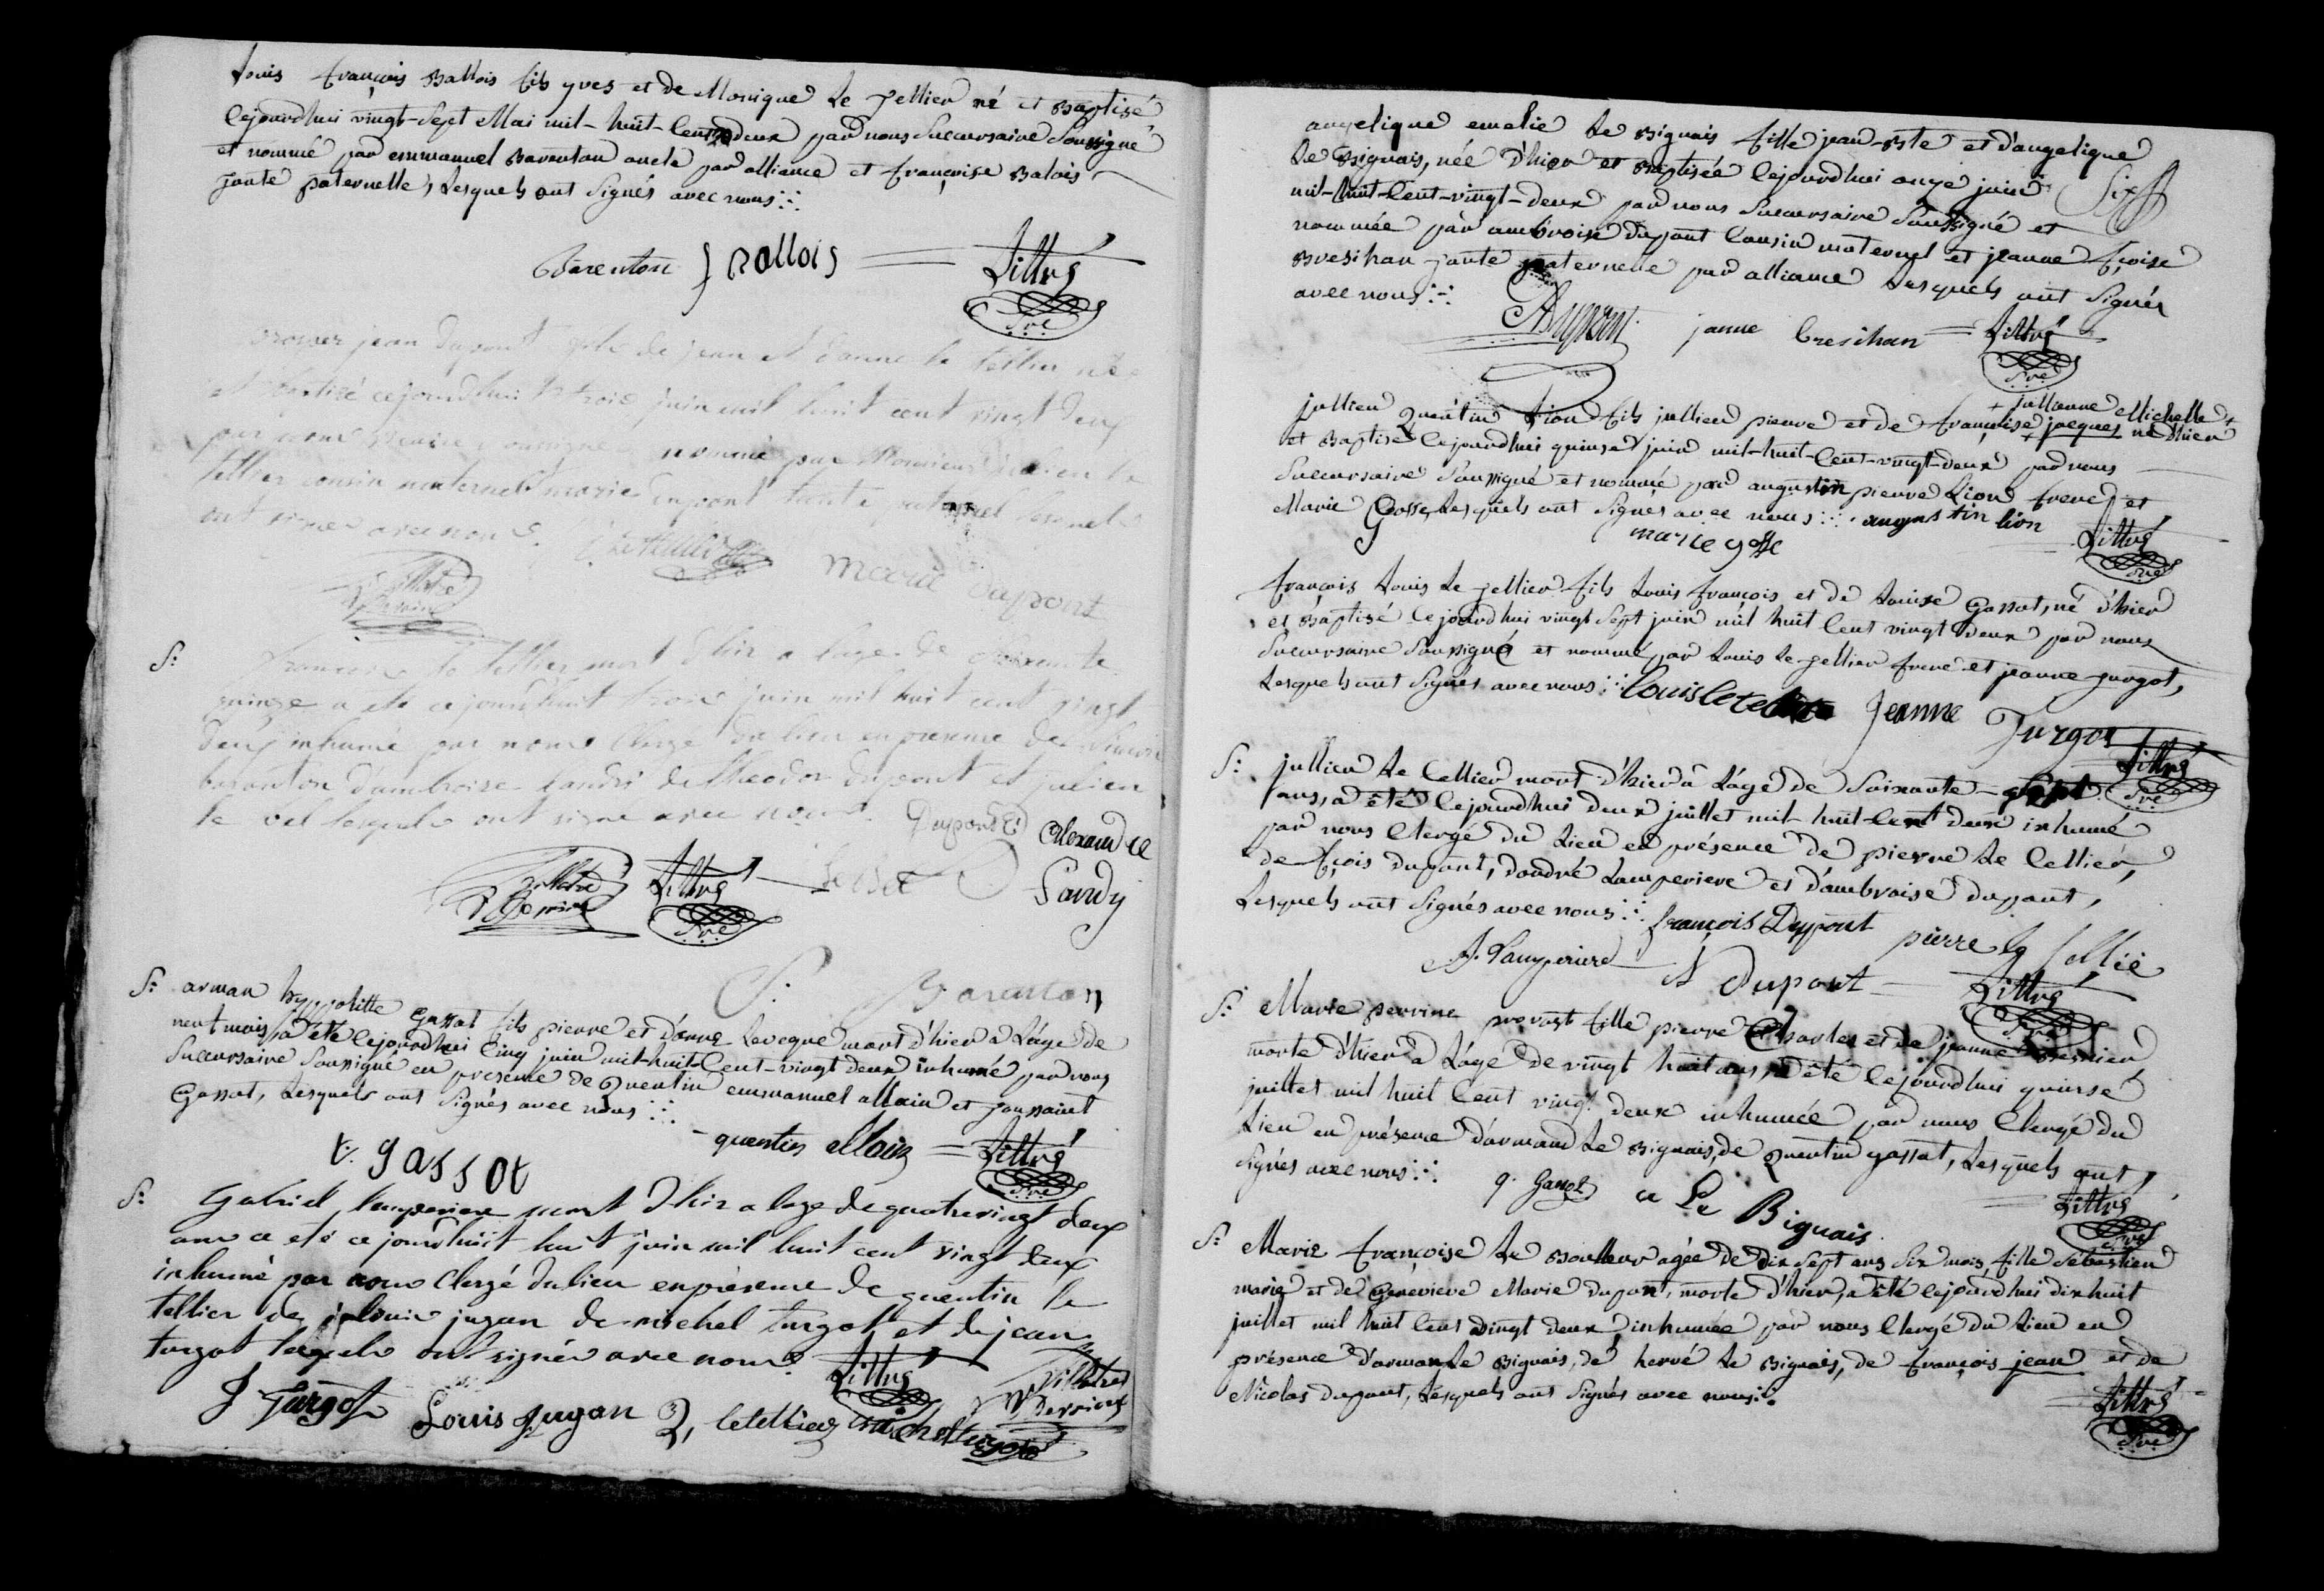 Louis françois Ballois fils yves et de Monique Le Tellier né et Baptisé
Cejourdhui vingt-Sept Mai mil-huit-Cent deux par nous Succursaire Soussigné
et nommé par emmanuel Barenton oncle par alliance et françoise Balois
tante paternelle, Lesquels ont Signés avec nous
Barenton f Ballois Littré
Sre
jean dupont fils de jean et danne le tellier né
et Baptizé cejourdhui trois juin mil huit cent vingt deux
par nous vicaire soussigné nommé par Monsieur julien le
tellier cousin maternel marie dupont tante paternel lesquels
ont signés avec nous
Marie dupont
S:
francois le tellier mort d'hir a lage de soixante
quinze a été ce jourdhuit trois juin mil huit cent vingt
deux inhumé par nous Clergé du lieu en presence de Simon
baranton d'ambroise landri de theodor dupont et julien
le vel lesquels ont signé avec nous. Dupont Alexandre
Littré Landy
Sre
S: Barenton
S: arman hyppolitte Gassot fils pierre et d'anne Leveque mort d'hier a L'age de
neuf mois, a été Cejourdhui Cinq juin mil-huit-Cent-vingt deux inhumé par nous
Succursaire Soussigné en presence de Quentin emmanuel allain et toussaint
Gassot, Lesquels ont Signés avec nous
t. gassot quentin allain Littré
Sre
S: Gabriel lamperiere mort d'hir a lage de quatre vingt deux
ans a eté ce jourdhuit huit juin mil huit cent vingt deux
inhumé par nous Clergé du lieu en présence de quentin le
tellier de louis jugan de michel turgot et de jean
turgot lesquels ont signés avec nous Littré
J Turgot Louis Jugan Q, letellier michel turgot
angelique emelie Le Bignais fille jean-Bte et d'angelique
Le Bignais, née d'hier et Baptisée Cejourd'hui onze juin
mil-huit-Cent-vingt-deux par nous Succursaire Soussigné et
nommée par ambroise dupont Cousin maternel et jeanne fçoise
Bresihan tante paternelle par alliance Lesquels ont Signés
avec nous
ADupont janne bresihan Littré
Sre
+ jullienne Michelle +
jullien Quentin Lion fils jullien pierre et de françoise jacques né d'hier
et Baptisé Cejourdhui quinze juin mil-huit-Cent-vingt-deux par nous
Succursaire Soussigné et nommé par augustin pierre Lion frere et
Marie Gosse, Lesquels ont Signés avec nous augustin lion
marie gosse Littré
Sre
françois Louis Le Tellier fils Louis françois et de Louise Gassot, né d'hier
et Baptisé Cejourdhui vingt Sept juin mil huit Cent vingt deux par nous
Succursaire Soussigné et nommé par Louis Le Tellier frere et jeanne turgot,
Lesquels ont Signés avec nous Louis letellier Jeanne Turgot
Littré
Sre
S: jullien Le Cellier mort d'hier a L'age de Soixante-Sept
ans, a été Cejourdhui deux juillet mil-huit-Cent deux inhumé
par nous Clergé du Lieu en présence de pierre Le Cellier,
de fçois dupont, d'andré Lamperiere et d'ambroise dupont,
Lesquels ont Signés avec nous françois Dupont
A. Lamperiere A dupont pierre le sellié
Littré
Sre
S: Marie perrine provost fille pierre Charles et de jeanne Bernier
morte d'hier a L'age de vingt huit ans, a été Cejourdhui quinze
juillet mil huit Cent vingt deux inhumée par nous Clergé du
Lieu en présence d'armand Le Bignais, de Quentin gassot, Lesquels ont
Signés avec nous q. Gassot a Le Bignais Littré
S: Marie françoise Le Boulleur agée de dix Sept ans Six mois fille Sébastien
marie et de Genevieve Marie dupont, morte d'hier, a été Cejourdhui dix huit
juillet mil huit Cent vingt deux, inhumée par nous Clergé du Lieu en
présence d'arman Le Bignais, de hervé Le Bignais, de françois jean et de
Nicolas dupont, Lesquels ont Signés avec nous
Littré
Sre